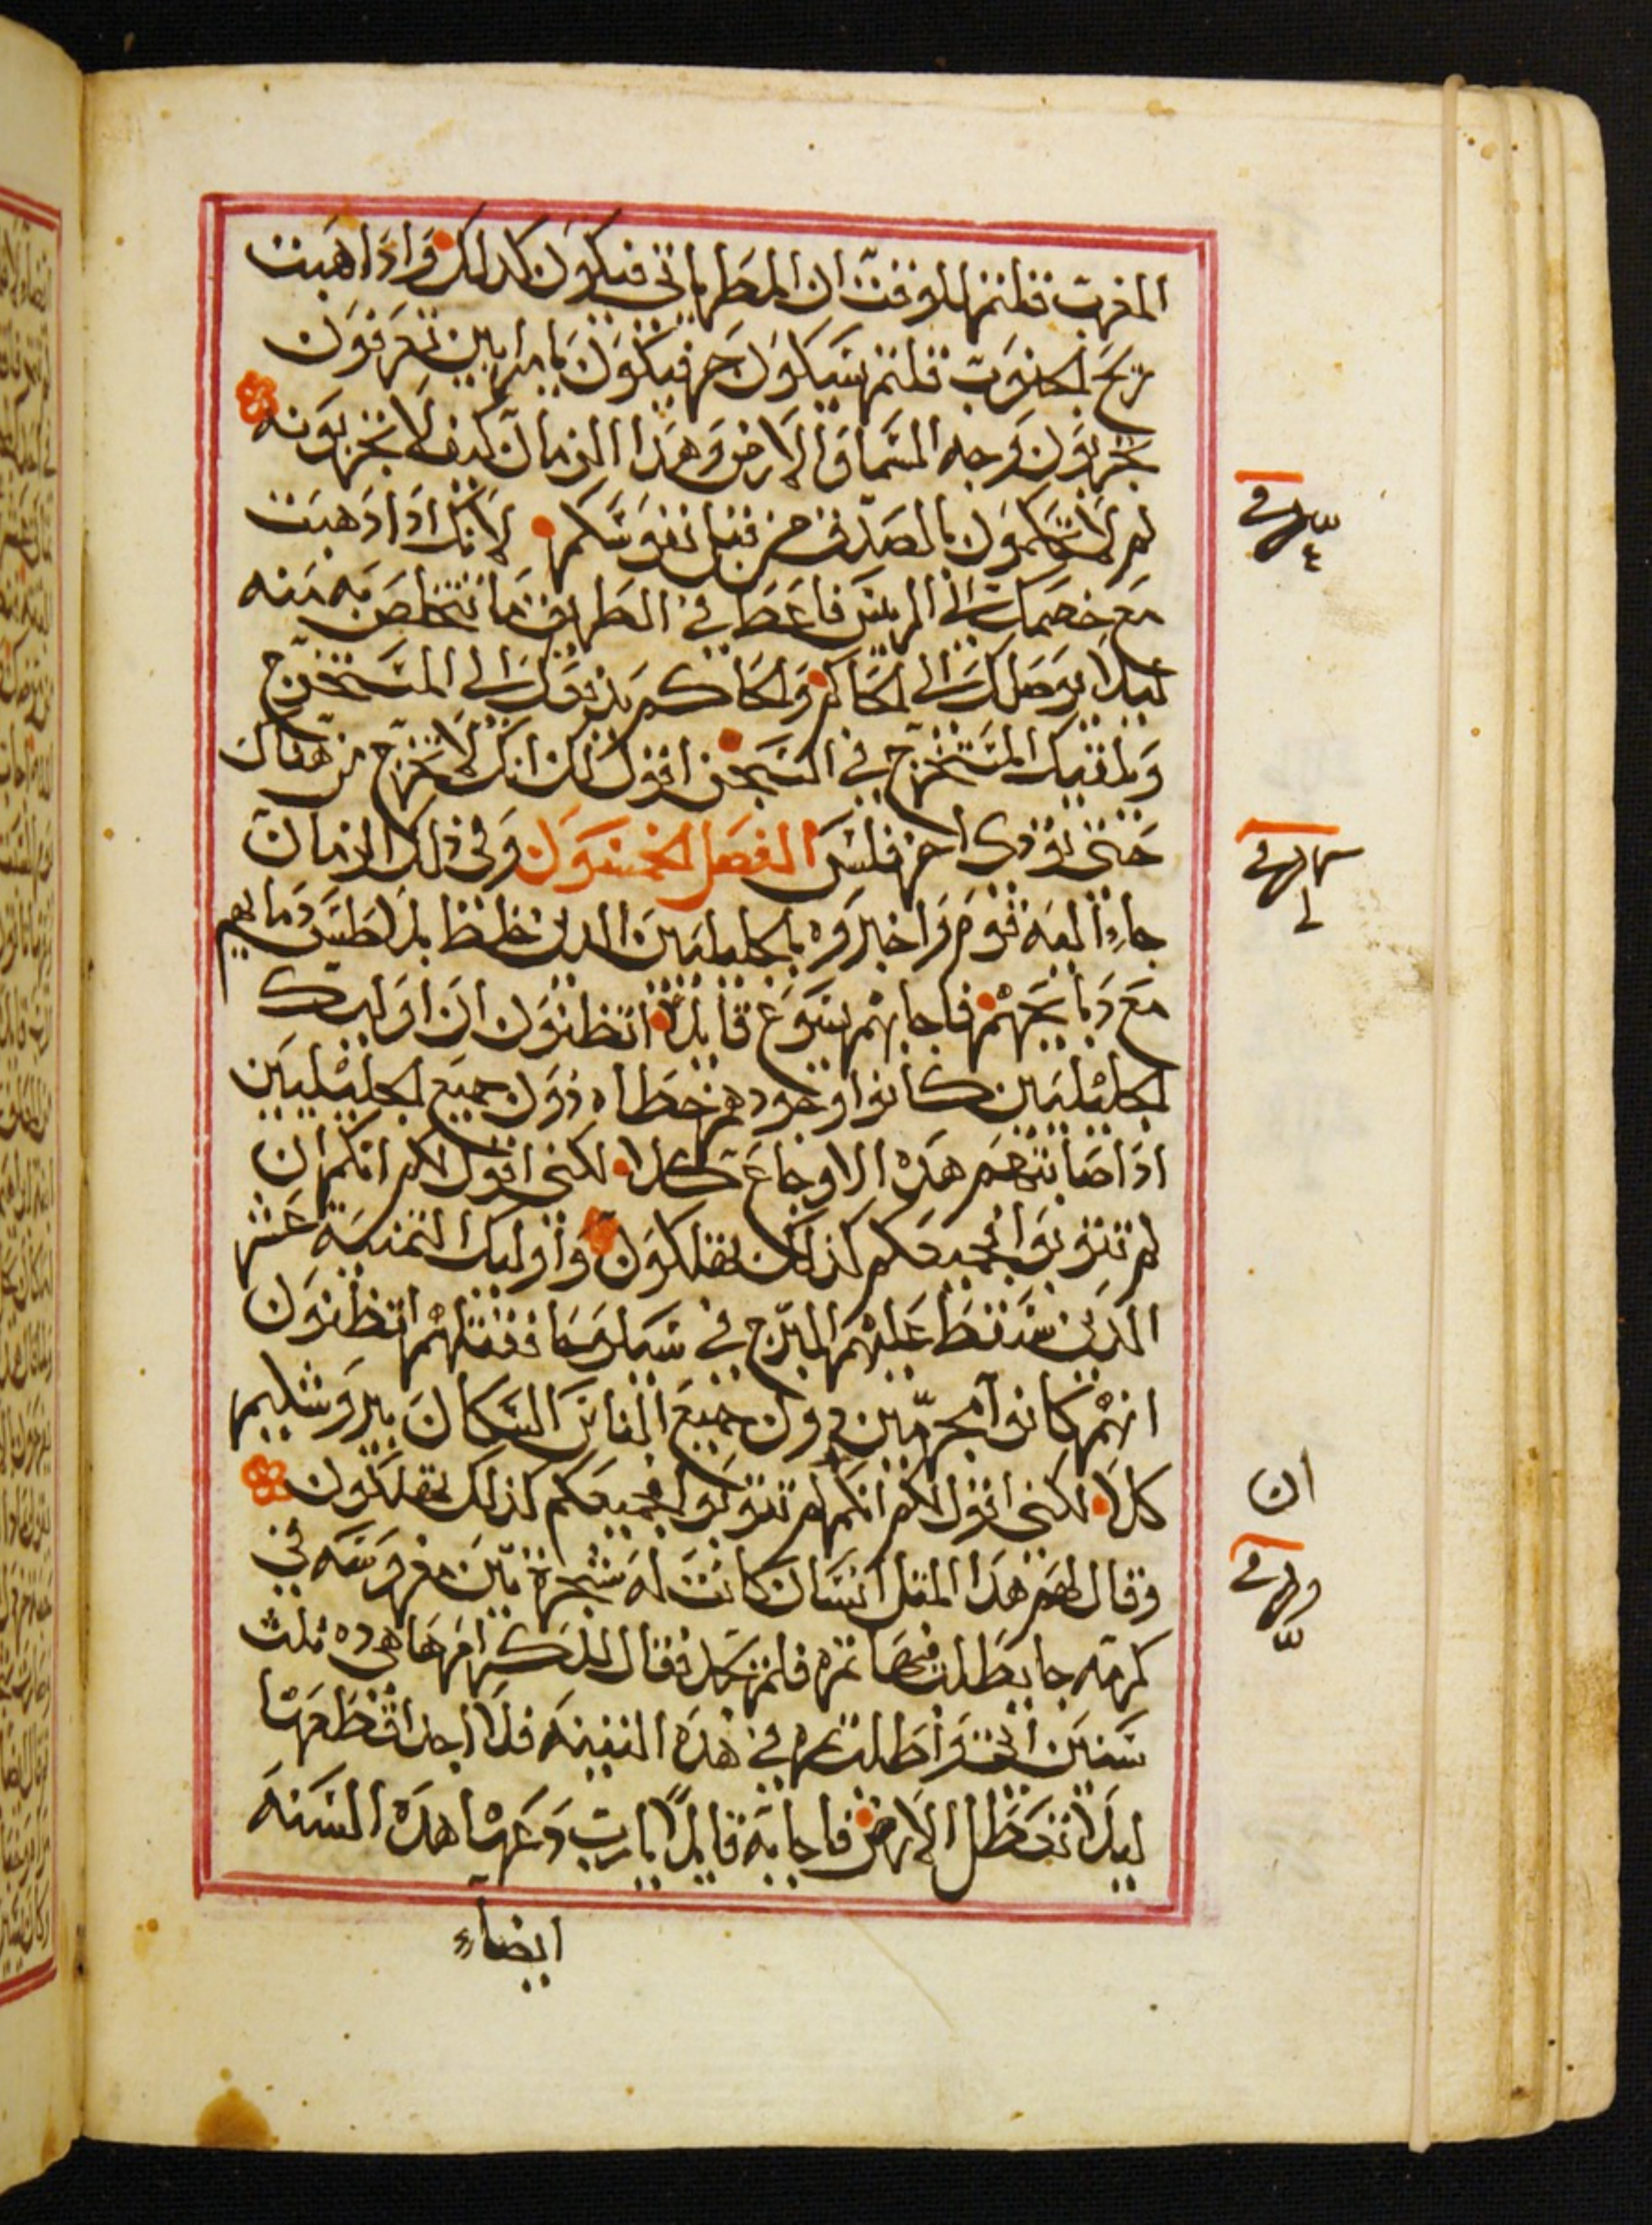 المغرب قلتم للوقت ان المطر ياتي فيكون كدلك وادا هبت
ريح الجنوب قلتم سيكون حر فيكون يا مرايين تعرفون
تجربون وجه السما والارض وهدا الزمان كيف لا تجربونه
لم لا تحكمون بالصدق من قبل نفوسكم لانك ادا دهبت
مع خصمك الى الريس فاعط في الطريق ما تتخلص به منه
ليلا يوصلك الى الحاكم والحاكم يدفعك الى المستخرج
ويلقيك المستخرج في السجن اقول لك انك لا تخرج من هناك
حتى تودى اخر فلس الفصل الخمسون وفي ذلك الزمان
جاء اليه قوم واخبروه بالجليليين الدين خلط بلاطس دمايهم
مع دبايحهم فاجابهم يسوع قايلا اتظنون ان اوليك
الجليليين كانوا وحودهم خطاه دون جميع الجليليين
ادا صابتهم هده الاوجاع كلا لكني اقول لكم انكم ان
لم تتوبوا فجميعكم كذلك تهلكون واوليك التمنية عشر
الدين سقط عليهم البرج في سيلوحا فقتلهم اتظنون
انهم كانوا مجرمين دون جميع الناس السكان بيروشليم
كلا لكني اقول لكم انكم لم تتوبوا فجميعكم كذلك تهلكون
وقال لهم هدا المتل انسان كانت له شجرة تين مغروسه في
كرمه جا يطلب فيها تمره فلم يجد فقال للكرام ها هوده تلت
سنين اتي واطلب تمره في هده التينه فلا اجد اقطعها
ليلا تعطل الارض فاجابه قايلا يارب دعها هده السنه
ايضاء
ان